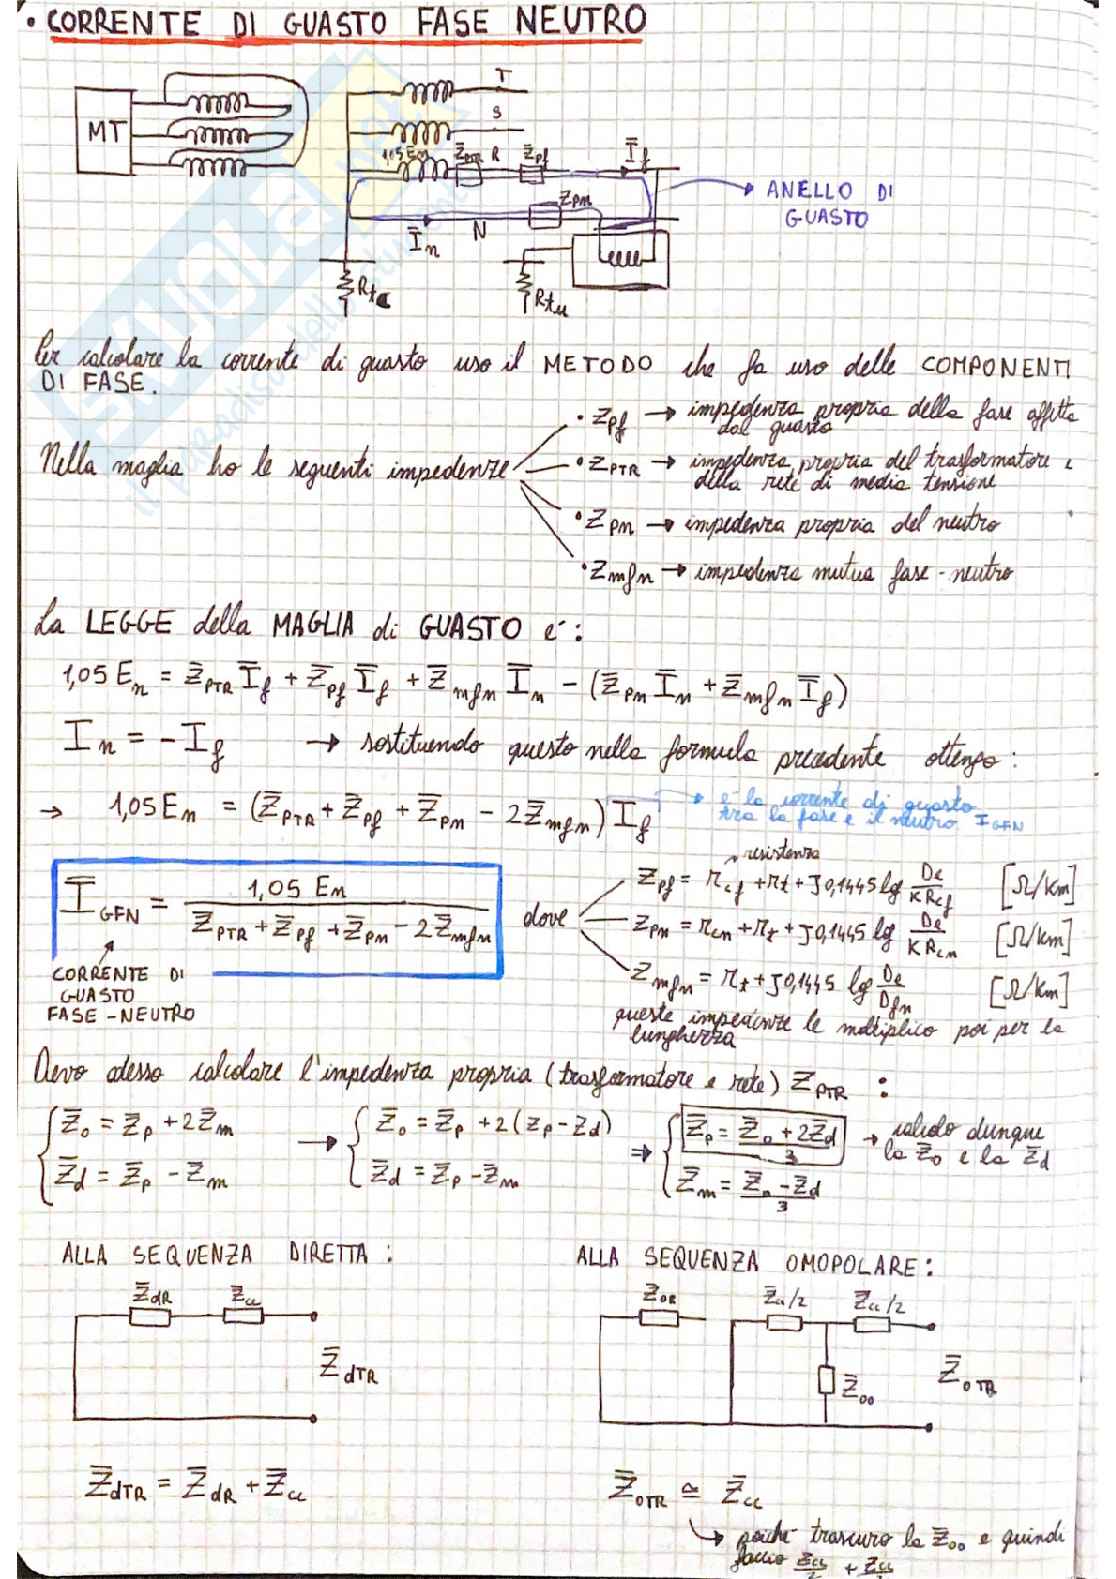 • CORRENTE DI GUASTO FASE NEUTRO
MT
T
S
1,05 En Z̄PTR R Z̄pf Īf
Zpn
Īn N
ANELLO DI
GUASTO
Rtc
Rtu
Per calcolare la corrente di guasto uso il METODO che fa uso delle COMPONENTI
DI FASE.
Nella maglia ho le seguenti impedenze
• Zpf → impedenza propria della fase affetta
dal guasto
• ZPTR → impedenza propria del trasformatore e
della rete di media tensione
• Zpn → impedenza propria del neutro
• Zmfn → impedenza mutua fase-neutro
La LEGGE della MAGLIA di GUASTO e':
1,05 En = Z̄PTR Īf + Z̄pf Īf + Z̄mfn Īn - (Z̄pn Īn + Z̄mfn Īf)
In = -If → sostituendo questo nella formula precedente ottengo:
→ 1,05 En = (Z̄PTR + Z̄pf + Z̄pn - 2Z̄mfn) If
→ e' la corrente di guasto
tra la fase e il neutro IGFN
ĪGFN = 1,05 En / (Z̄PTR + Z̄pf + Z̄pn - 2Z̄mfn)
CORRENTE DI
GUASTO
FASE-NEUTRO
dove
resistenza
Zpf = rcf + rt + J0,1445 lg De/KRcf [Ω/km]
Zpn = rcn + rt + J0,1445 lg De/KRcn [Ω/km]
Zmfn = rt + J0,1445 lg De/Dfn [Ω/km]
queste impedenze le moltiplico poi per la
lunghezza
Devo adesso calcolare l'impedenza propria (trasformatore e rete) ZPTR :
Z̄o = Z̄p + 2Z̄m → Z̄o = Z̄p + 2(Zp - Zd) ⇒ Z̄p = (Z̄o + 2Z̄d)/3 → calcolo dunque
la Z̄o e la Z̄d
Z̄d = Z̄p - Z̄m Z̄d = Z̄p - Z̄m Z̄m = (Z̄o - Z̄d)/3
ALLA SEQUENZA DIRETTA :
Z̄dR Z̄cc
Z̄dTR
Z̄dTR = Z̄dR + Z̄cc
ALLA SEQUENZA OMOPOLARE :
Z̄oR Z̄cc/2 Z̄cc/2
Z̄oo
Z̄oTR
Z̄oTR ≃ Z̄cc
↳ poiche' trascuro la Z̄oo e quindi
faccio Zcc/2 + Zcc/2